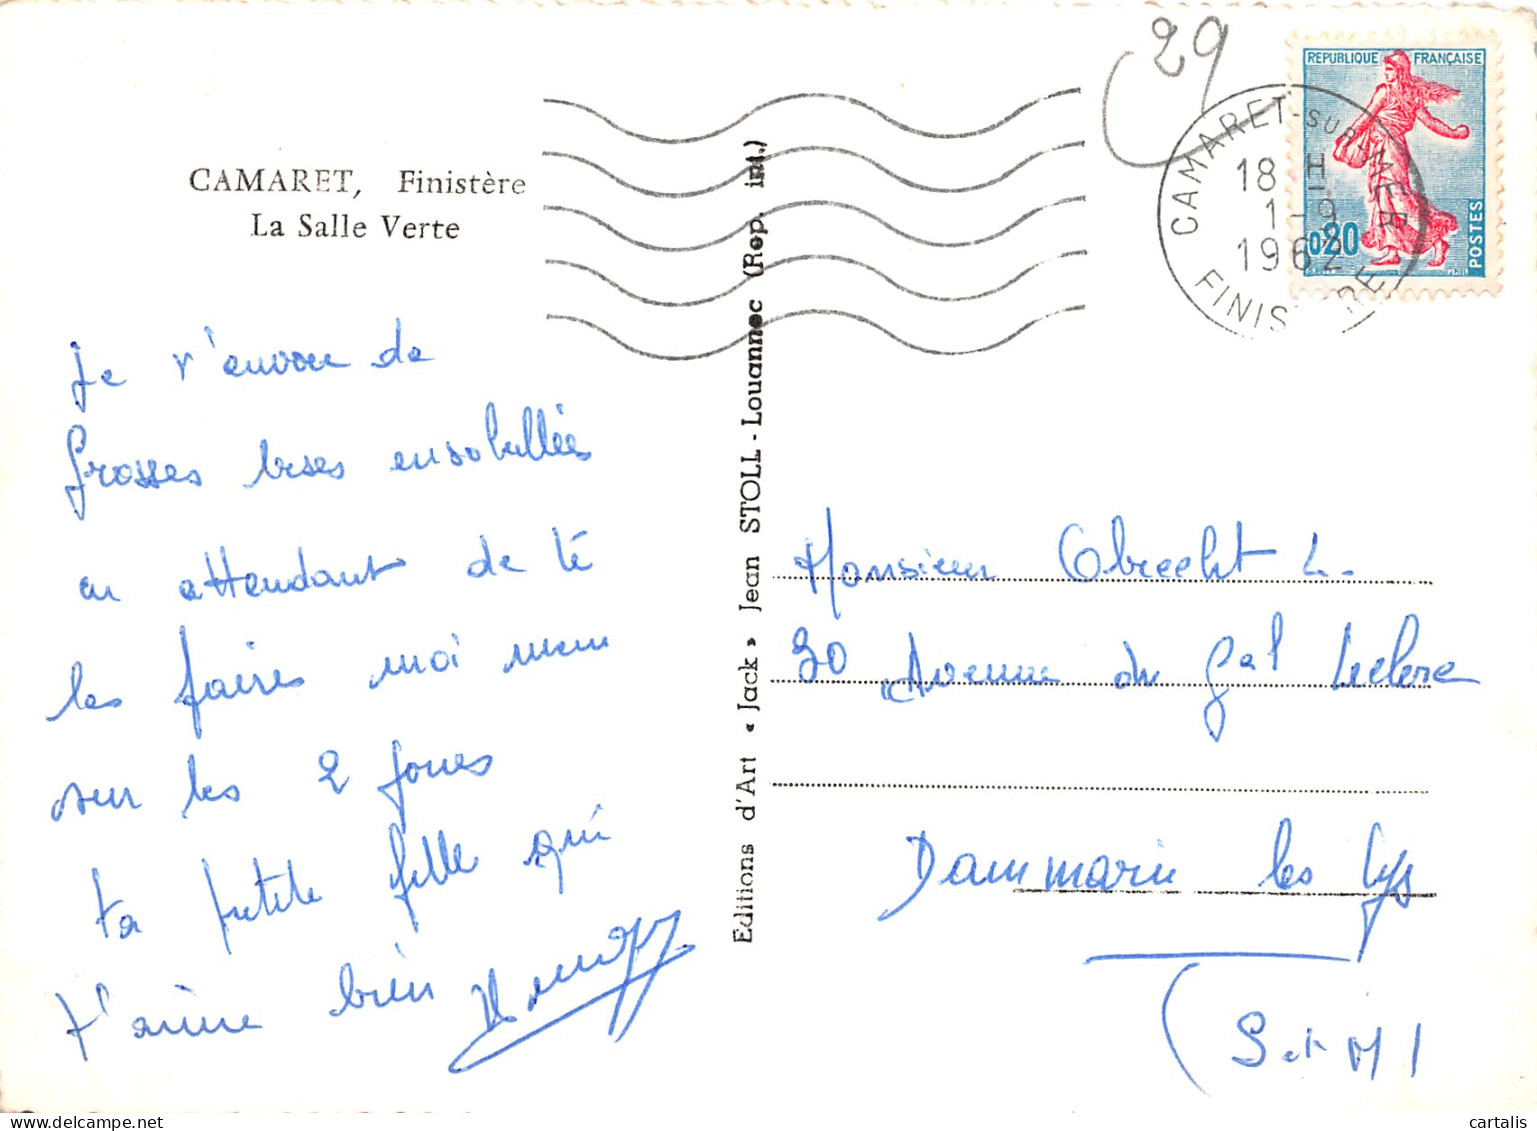 29
REPUBLIQUE FRANÇAISE
0,20
POSTES
CAMARET-SUR-MER
18 H
1-9
1962
FINISTERE
CAMARET, Finistère
La Salle Verte
Editions d'Art « Jack » Jean STOLL - Louannec (Rep. int.)
Je t'envoie de
grosses bises ensoleillées
en attendant de te
les faires moi meme
sur les 2 joues
ta petite fille qui
t'aime bien
Monsieur Obrecht L.
30 Avenue du Gal Leclerc
Dammarie les Lys
(S et M)
cartalis